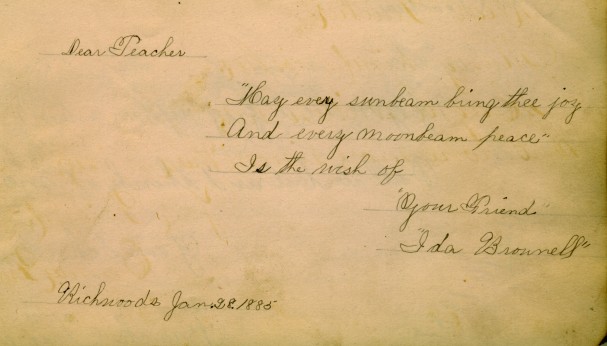 Dear Teacher
"May every sunbeam bring thee joy
And every moonbeam peace"
Is the wish of
"Your Friend"
"Ida Brownell"
Richwoods Jan. 28. 1885